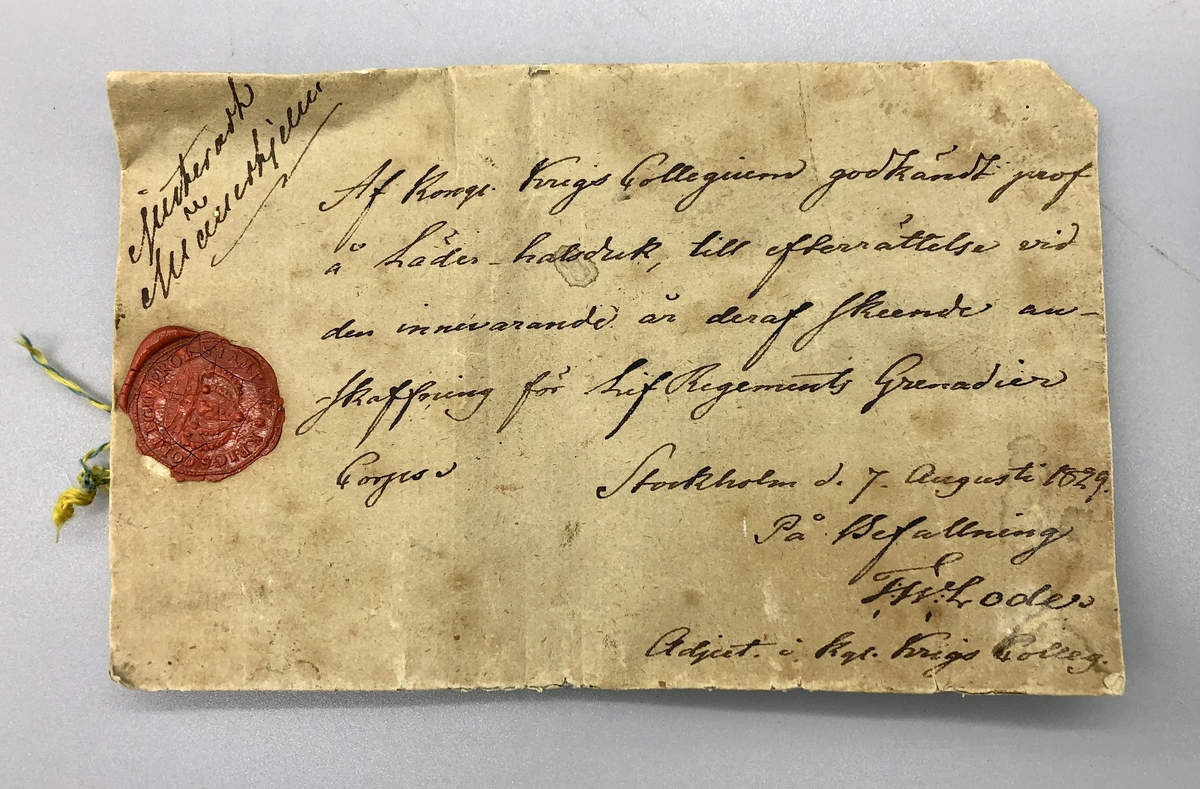 Af Kongl. Krigs Collegium godkändt prof
å Läder-halsduk, till efterrättelse vid
den innevarande år deraf skeende an-
skaffning för Lif Regements Grenadier
Corps
Stockholm d. 7. Augusti 1829.
På Befallning
Adjut. i Kgl. Krigs Colleg.